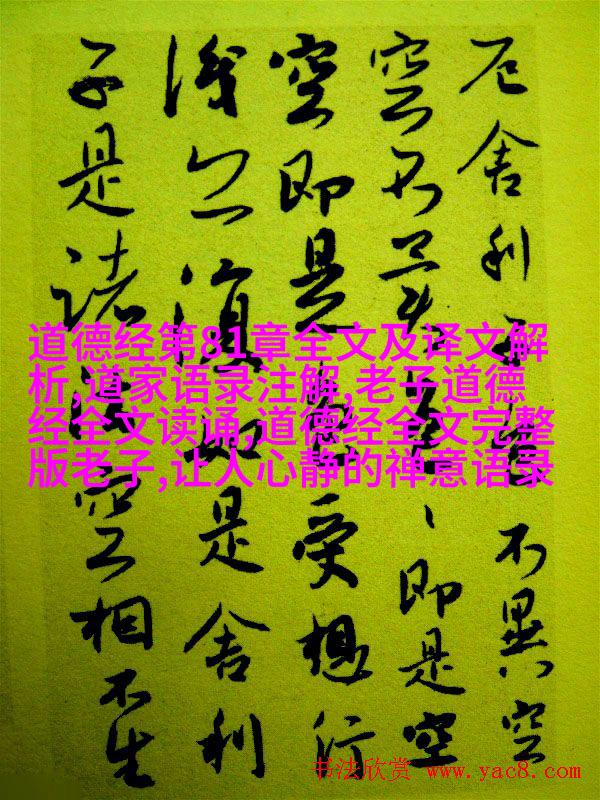 厄舍利子色不異空
空不異色、即是空
空即是色受想行
識亦復如是舍利
子是諸法空相不生
道德经第81章全文及译文解
析,道家语录注解,老子道德
经全文读诵,道德经全文完整
版老子,让人心静的禅意语录
书法欣赏 www.yac8.com